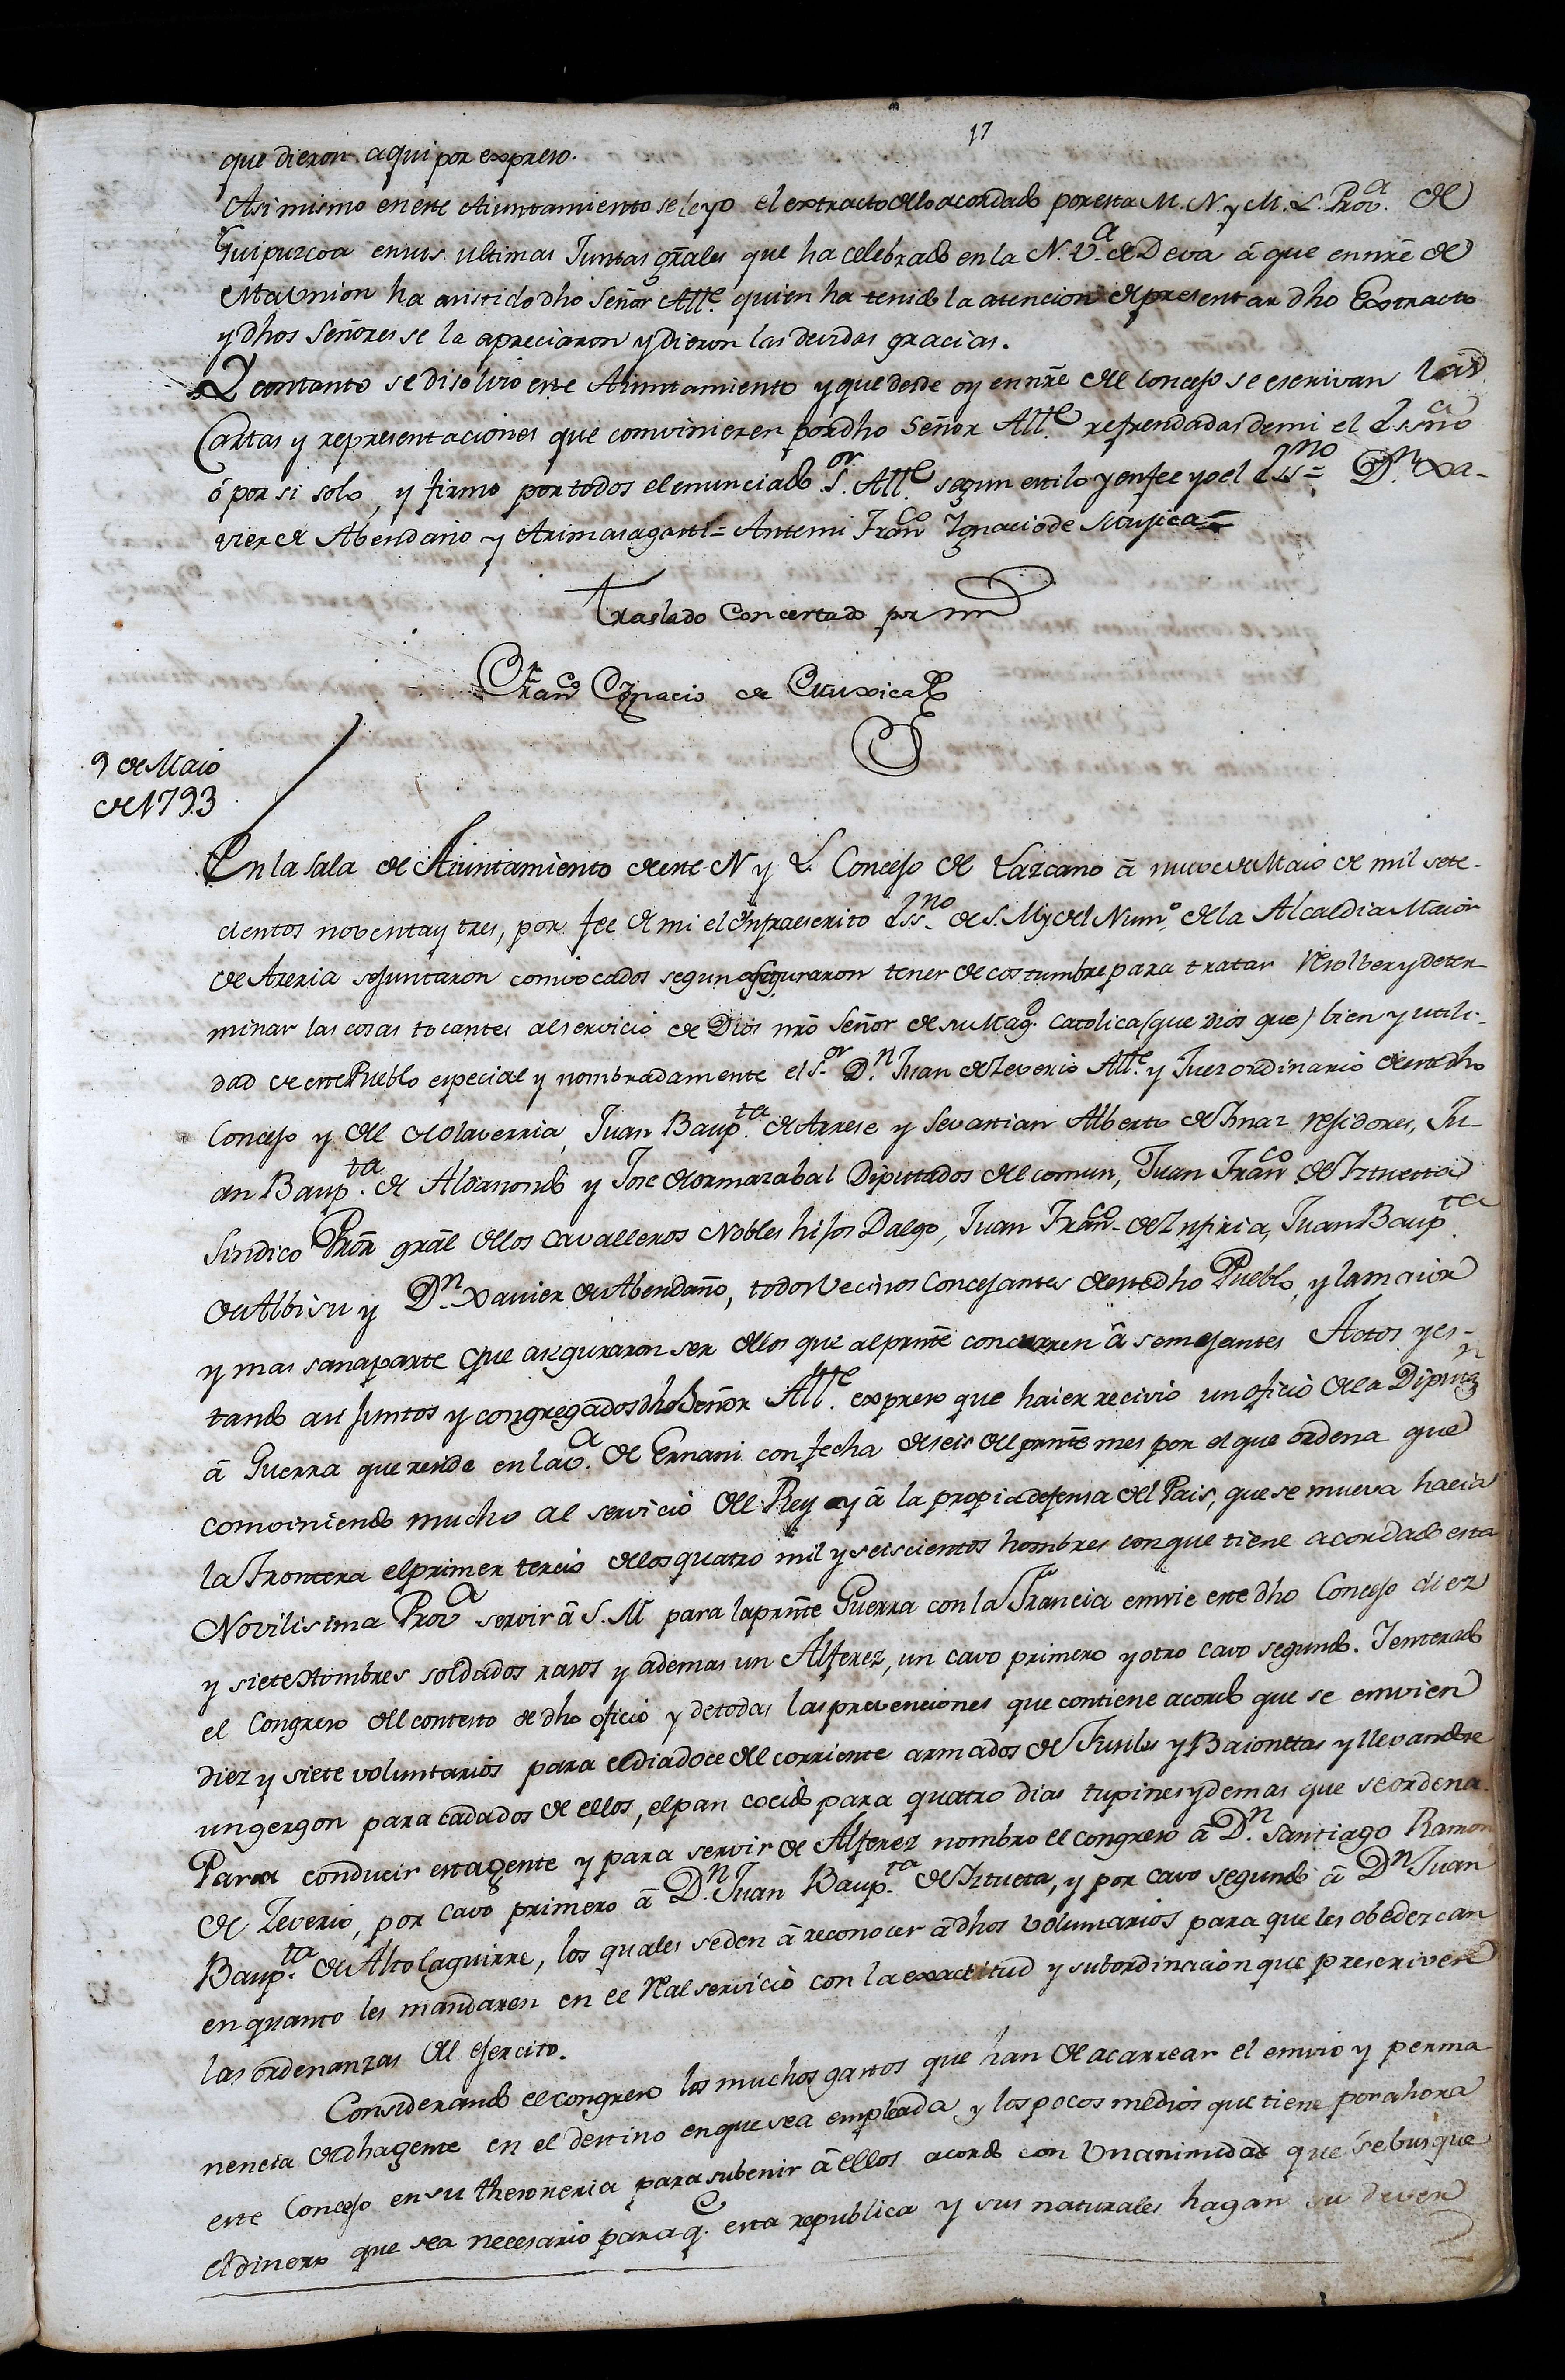 17
que dieron aqui por expreso.
Asi mismo en este Aiuntamiento se leyo el extracto de lo acordado por esta M. N. y M. L. Prov.a de
Guipuzcoa en sus ultimas Juntas grāles que ha celebrado en la N. V.a de Deva â que en nrē de
esta Union ha asistido dho Señor All.e quien ha tenido la atencion de presentar dho Extracto
y dhos Señores se la apreciaron y dieron las devidas gracias.
Y con tanto se disolvio este Aiuntamiento y que desde oy en nrē del Concejo se escrivan las
Cartas y representaciones que convinieren por dho Señor All.e refrendadas de mi el Essno
ó por si solo, y firmo por todos el enunciado S.or All.e segun estilo y en fee yo el Ess.no = D.n Xa-
vier de Abendaño y Arimasagasti = Antemi Fran.co Ignacio de Muxica =
Traslado Concertado por mi
Fran.co Ignacio de Muxica
9 de Maio
de 1793
En la Sala de Aiuntamiento de este N y L. Concejo de Lazcano â nueve de Maio de mil sete-
cientos noventa y tres, por fee de mi el Infraescrito Ess.no de S. M. y del Num.o de la Alcaldia Maior
de Areria se juntaron convocados segun aseguraron tener de costumbre para tratar resolber y deter-
minar las cosas tocantes al servicio de Dios nrō Señor de su Mag.d Catolica (que Dios gue) bien y utili-
dad de este Pueblo especial y nombradamente el S.or D.n Juan de Zeverio All.e y Juez ordinario de este dho
Concejo y del de Olaverria, Juan Baup.ta de Arrese y Sevastian Alberto de Ynaz regidores, Ju-
an Baup.ta de Aldasoro y Jose de Ormazabal Diputados del comun, Juan Fran.co de Iztuetta
Sindico Prōr grāl de los Cavalleros Nobles hijos Dalgo, Juan Fran.co de , Juan Baup.ta
de Albisu y D.n Xavier de Abendaño, todos Vecinos Concejantes de este dho Pueblo, y la maior
y mas sana parte que aseguraron ser de los que al prnte concurren â semejantes Actos y es-
tando asi juntos y congregados dho Señor All.e expreso que haier recivio un oficio de la Diputaz.n
â Guerra que reside en la V.a de Ernani con fecha de seis del prnte mes por el que ordena que
conviniendo mucho al servicio del Rey y â la propia defensa del Pais, que se mueva hacia
la Frontera el primer tercio de los quatro mil y seiscientos hombres con que tiene acordado esta
Novilisima Prov.a servir â S. M. para la prnte Guerra con la Francia envie este dho Concejo diez
y siete Hombres soldados rasos y ademas un Alferez, un cavo primero y otro cavo segundo. Y enterado
el Congreso del contesto de dho oficio y de todas las prevenciones que contiene acordo que se envien
diez y siete voluntarios para el dia doce del corriente armados de Fusiles y Baionettas y llevandose
un gergon para cada dos de ellos, el pan cocido para quatro dias tupines y demas que se ordena.
Para conducir esta gente y para servir de Alferez nombro el congreso â D.n Santiago Ramon
de Zeverio, por cavo primero â D.n Juan Baup.ta de Iztueta, y por cavo segundo â D.n Juan
Baup.ta de Altolaguirre, los quales se den â reconocer â dhos Voluntarios para que les obedezcan
en quanto les mandaren en el Real servicio con la exactitud y subordinacion que prescriven
las ordenanzas del ejercito.
Considerando el congreso los muchos gastos que han de acarrear el envio y perma
nencia de dha gente en el destino en que sea empleada y los pocos medios que tiene por ahora
este Concejo en su thesoreria para subenir â ellos acordo con Unanimidad que se busque
el dinero que sea necesario para q.e esta republica y sus naturales hagan su dever